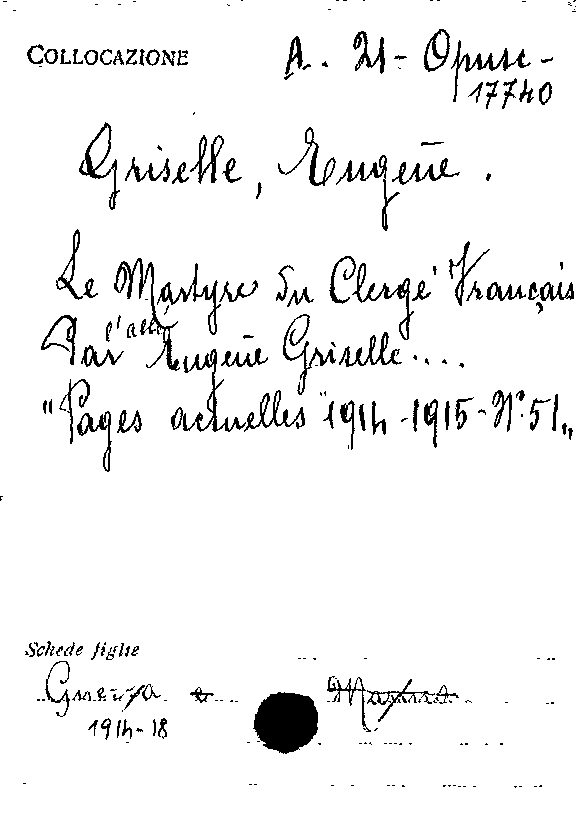 COLLOCAZIONE A. 21 - Opusc -
17740
Griselle, Eugène.
Le Martyre du Clergé Français
Par l'abbé Eugène Griselle....
"Pages actuelles" 1914-1915-N°. 51"
Schede figlie
Guerra e
1914-18